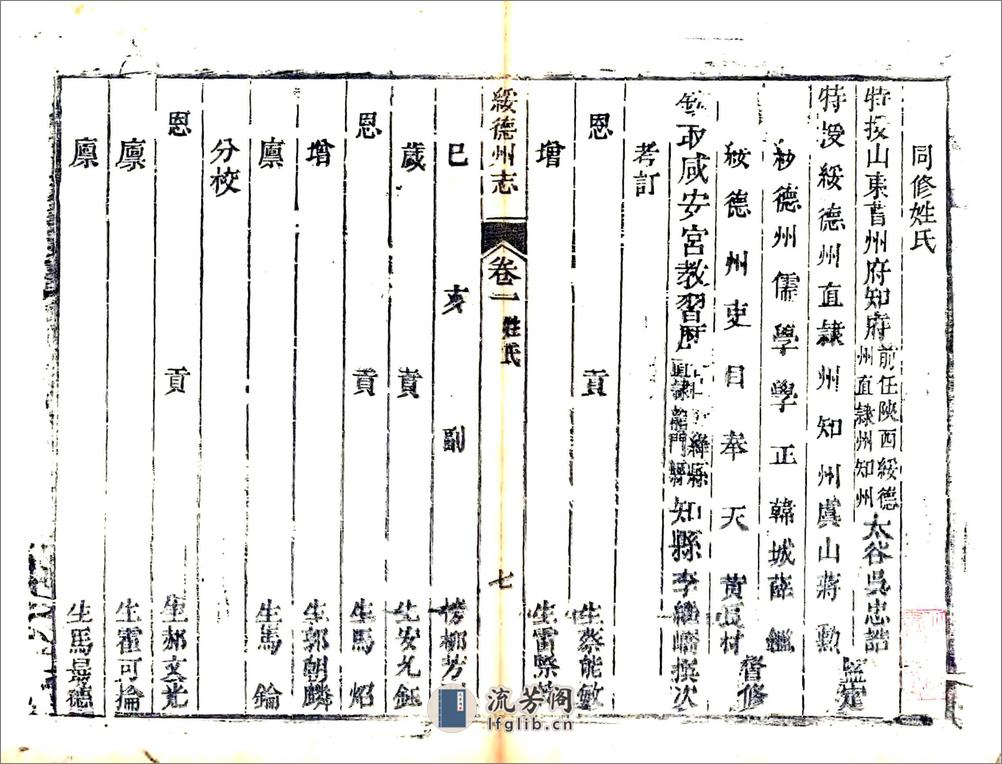 同修姓氏
特授山東曹州府知府前任陝西綏德州直隸州知州太谷吳忠誥
特授綏德州直隸州知州虞山蔣勳監定
綏德州儒學學正韓城薛
綏德州吏目奉天黃長材督修
取咸安宮教習歷絳縣直隸知縣李繼嶠撰次
考訂
恩貢生蔡能敏
增生雷
綏德州志 卷一 姓氏 七
己亥副榜柳芳
歲貢生安允鈺
恩貢生馬焰
增生郭朝麟
廩生馬錀
分校
恩貢生郝文光
廩生霍可掄
廩生馬景德
流芳阁
lfglib.cn